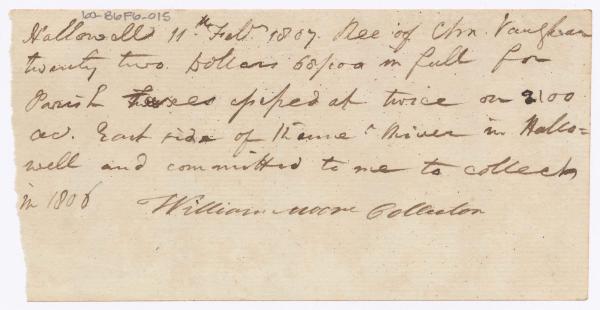 60-86F6-015
Hallowell 11th Feby 1807. Rec of Chs. Vaughan
twenty two Dollars 68/100 in full for
Parish Taxes assessed at twice on 2100
ac. East side of Kenne c River in Hallo=
well and committed to me to collect
in 1806
William Moore Collector